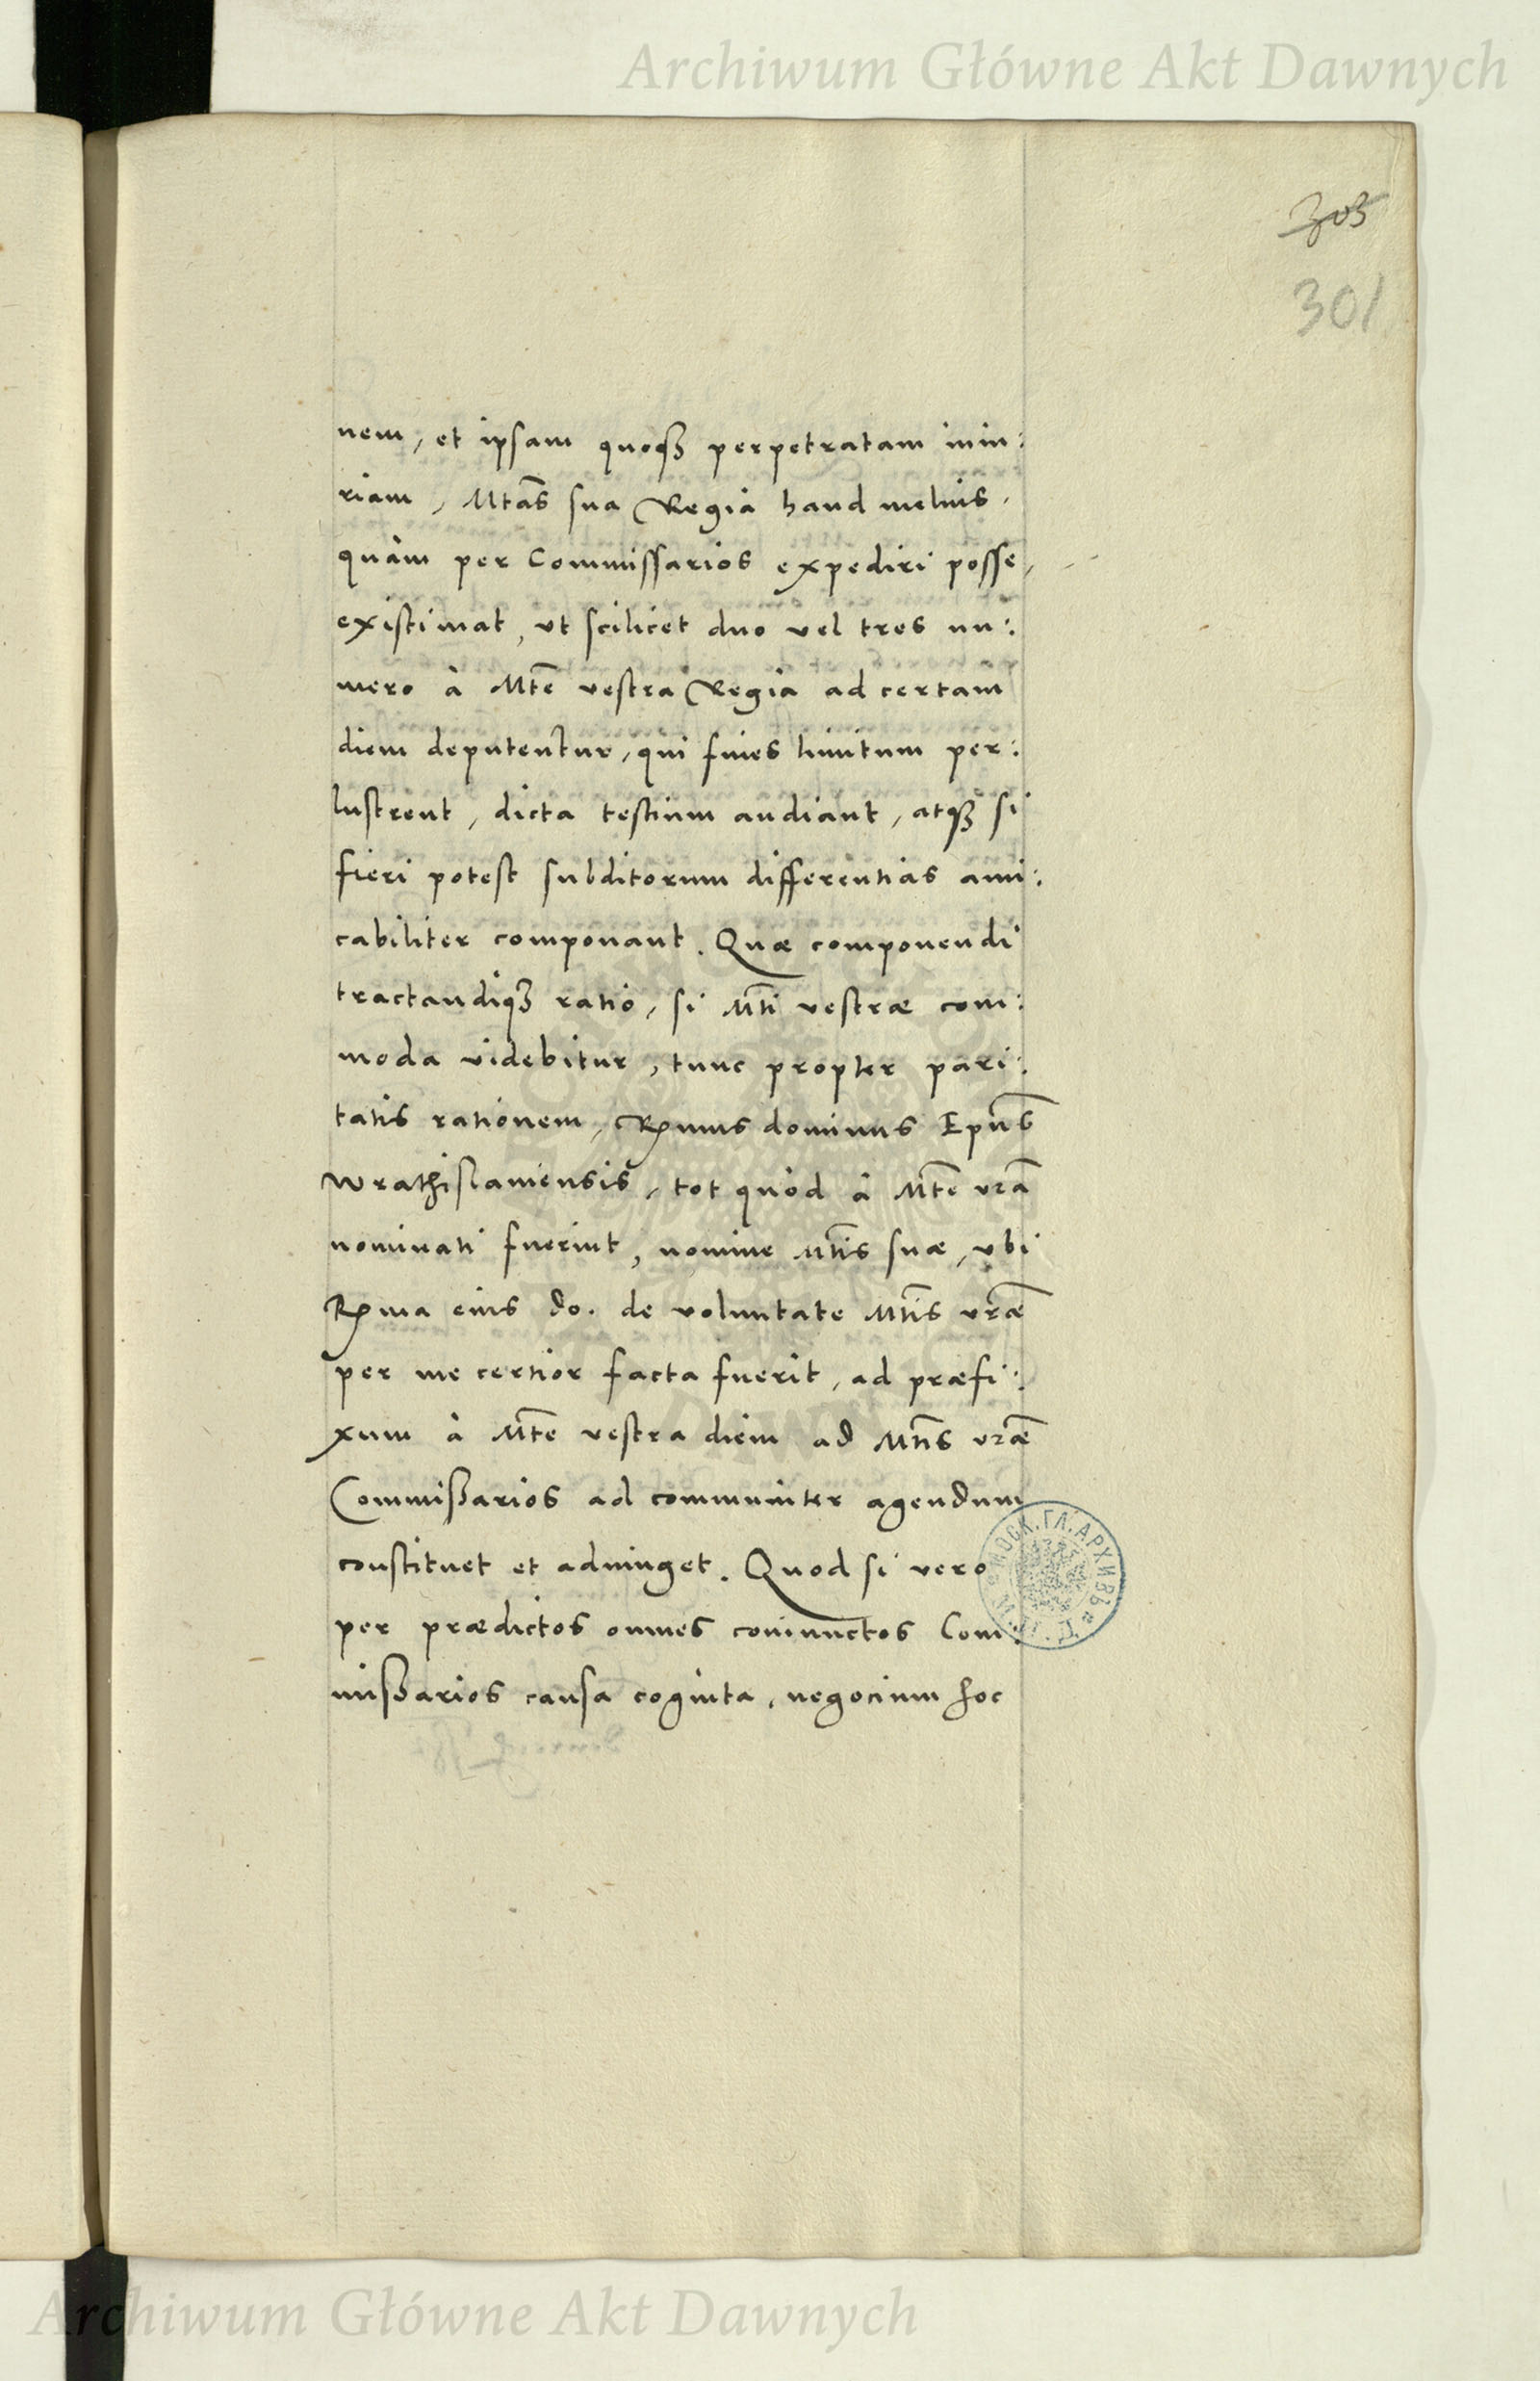 Archiwum Główne Akt Dawnych
303
301
nem, et ipsam quoqꝫ perpetratam iniu:
riam, Mtãs sua Regia haud melius,
quàm per Commissarios expediri posse,
existimat, vt scilicet duo vel tres nu:
mero à Mtẽ vestra Regia ad certam
diem deputentur, qui fines limitum per:
lustrent, dicta testium audiant, atqꝫ si
fieri potest subditorum differentias ami:
cabiliter componant. Quæ componendi
tractandiqꝫ ratio, si Mti̅ vestræ com:
moda videbitur, tunc propter pari:
tatis rationem, Rmus dominus Epũs
Wrathislauiensis, tot quod à Mtẽ vrã
nominati fuerint, nomine Mti̅s suæ, vbi
Rma eius do. de voluntate Mti̅s vræ̃
per me certior facta fuerit, ad præfi:
xum à Mtẽ vestra diem ad Mti̅s vræ̃
Commißarios ad communiter agendum
constituet et adiunget. Quod si vero
per prædictos omnes coniunctos Com:
mißarios causa cognita, negocium hoc
МОСК. ГЛ. АРХИВЪ
Archiwum Główne Akt Dawnych